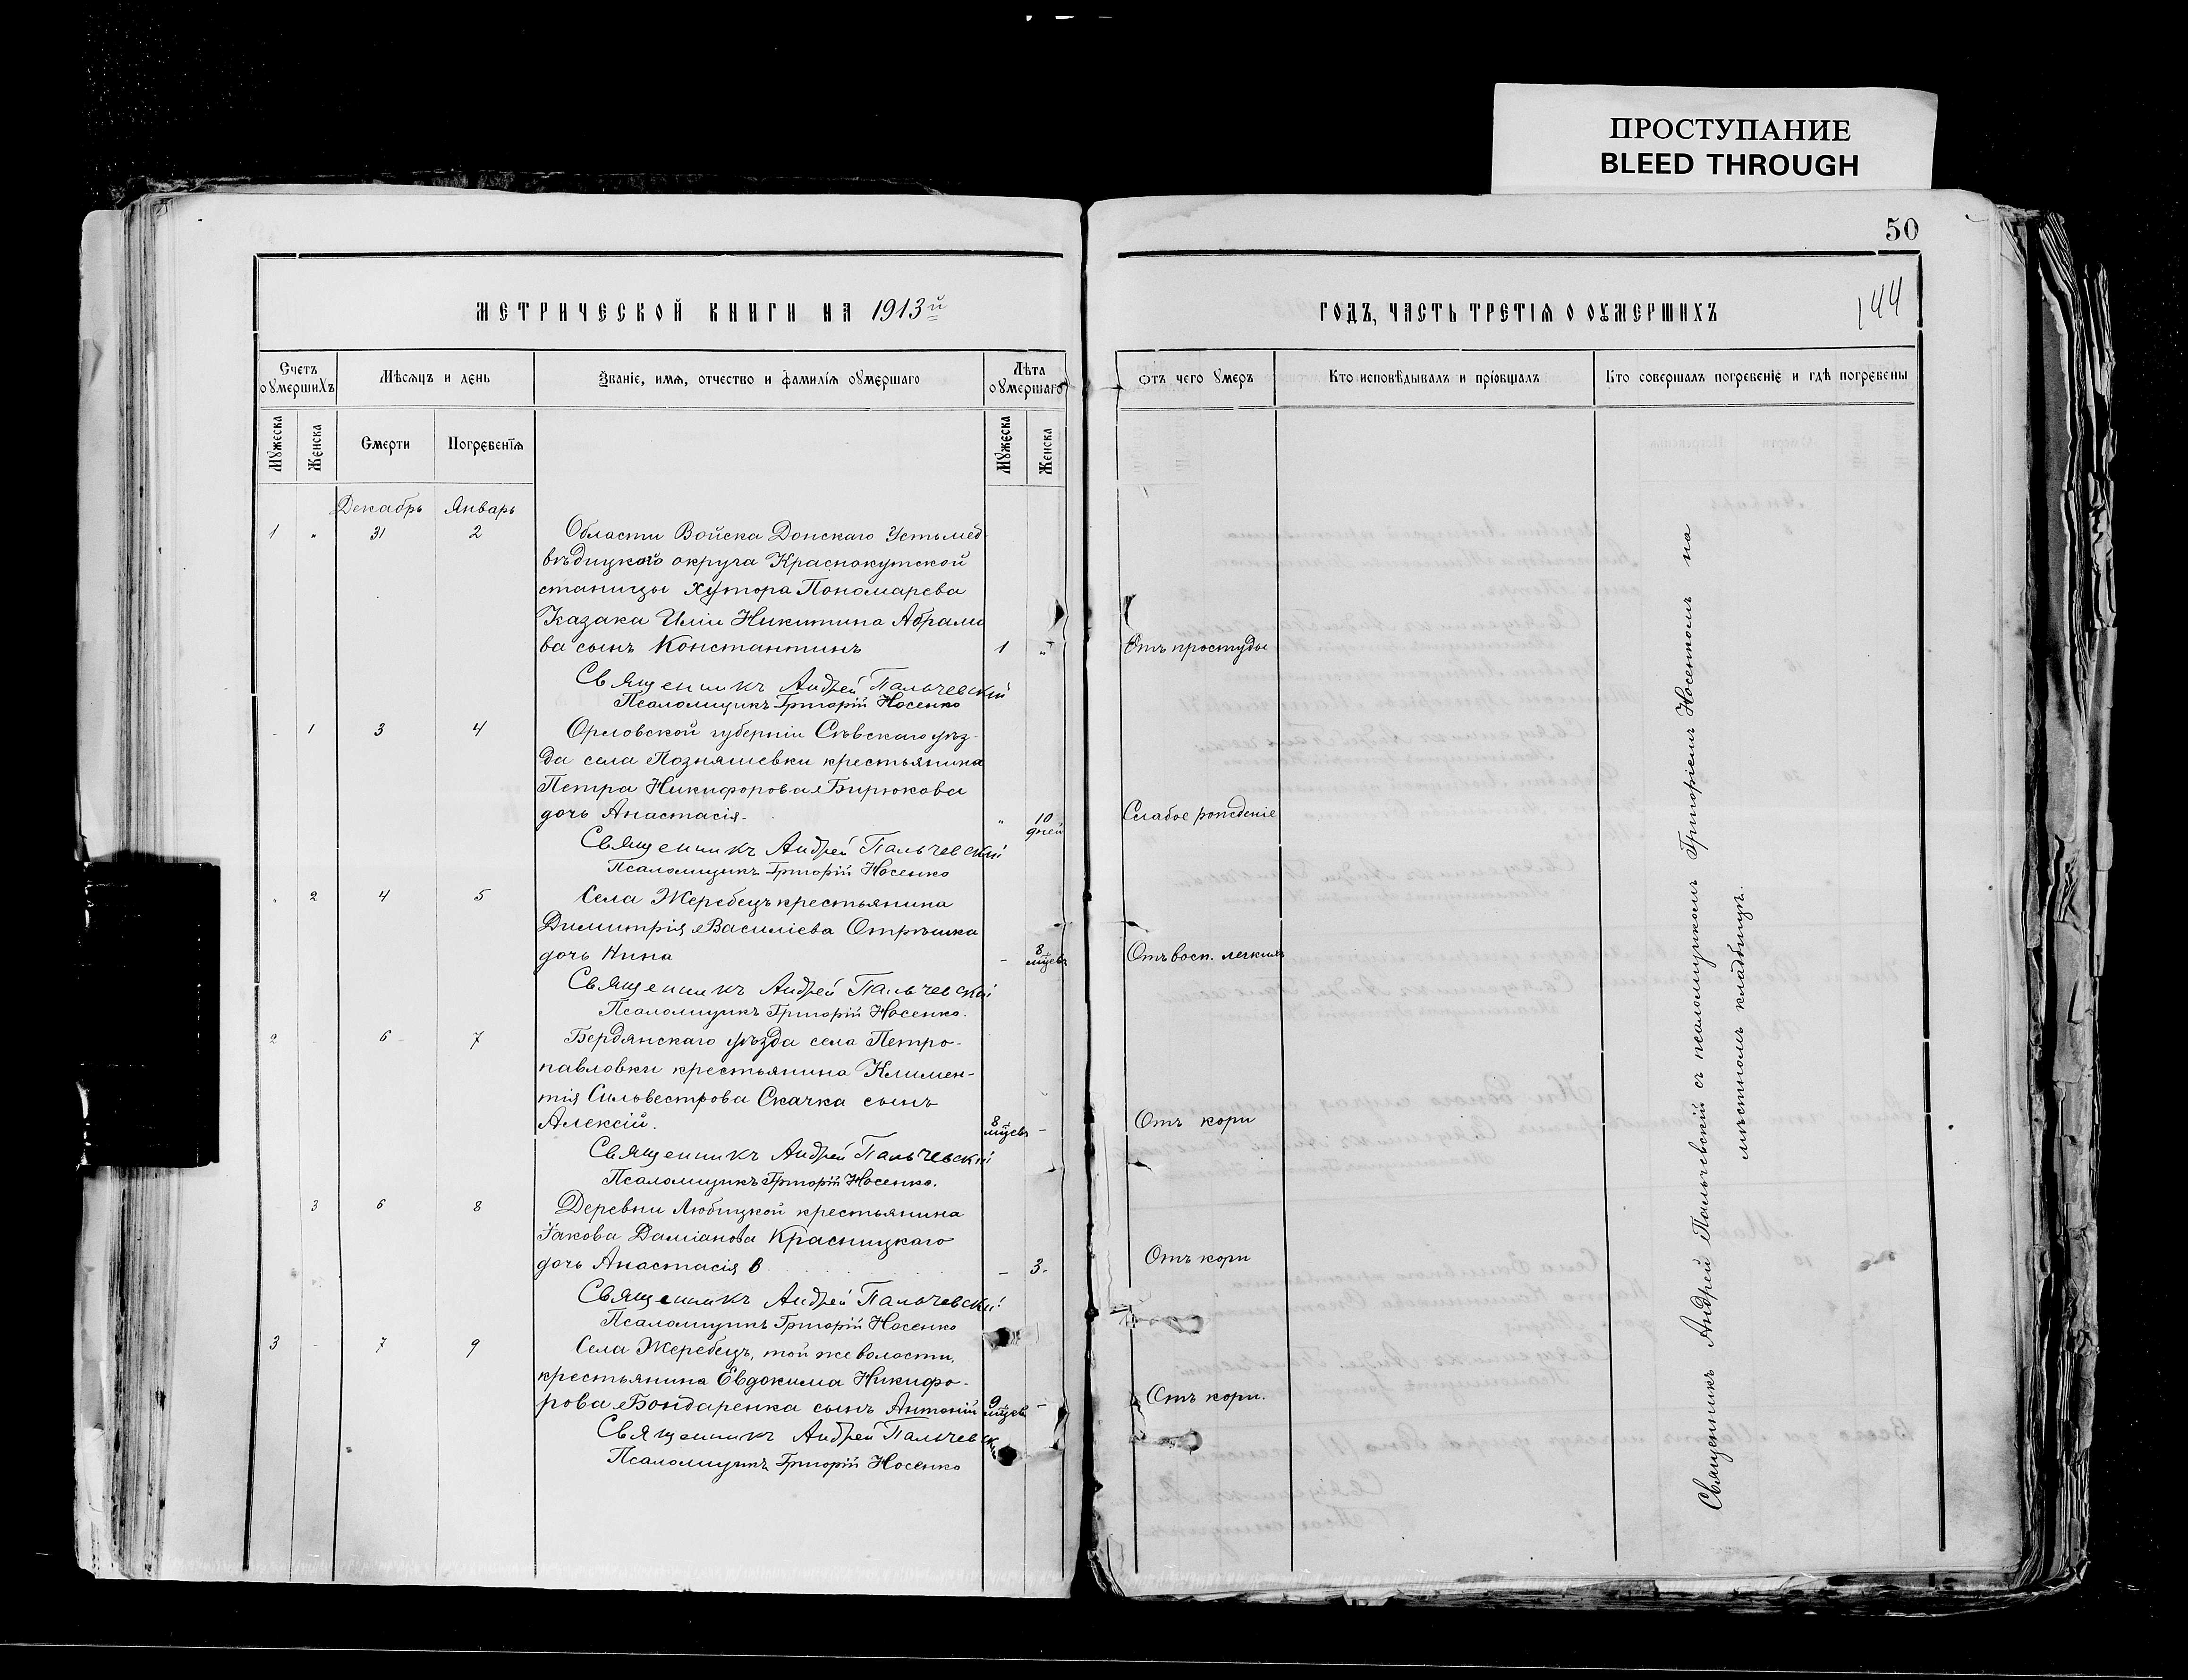 ПРОСТУПАНИЕ
BLEED THROUGH
50
144
МЕТРИЧЕСКОЙ КНИГИ НА 1913й
Счетъ оумершихъ
Мѣсяцъ и день
Званіе, имя, отчество и фамилія оумершаго
Лѣта оумершаго
Мужеска
Женска
Смерти
Погребенія
Мужеска
Женска
Декабрь Январь
1 " 31 2 Области Войска Донскаго Устьмед-
вѣдицкаго округа Краснокутской
станицы хутора Пономарева
Казака Иліи Никитина Абрамо
ва сынъ Константинъ 1 "
Священникъ Андрей Пальчевскій
Псаломщикъ Григорій Носенко
- 1 3 4 Орловской губерніи Сѣвскаго уѣз-
да села Позняшевки крестьянина
Петра Никифорова Бирюкова
дочь Анастасія. " 10 дней
Священникъ Андрей Пальчевскій
Псаломщикъ Григорій Носенко
" 2 4 5 Села Жеребецъ крестьянина
Димитрія Василіева Отрѣшка
дочь Нина - 8 мцевъ
Священникъ Андрей Пальчевскій
Псаломщикъ Григорій Носенко.
2 - 6 7 Бердянскаго уѣзда села Петро-
павловки крестьянина Климен-
тія Сильвестрова Скачка сынъ
Алексій. 8 мцевъ -
Священникъ Андрей Пальчевскій
Псаломщикъ Григорій Носенко.
3 6 8 Деревни Любицкой крестьянина
Іакова Даміанова Красницкаго
дочь Анастасія - 3.
Священникъ Андрей Пальчевскій
Псаломщикъ Григорій Носенко
3 - 7 9 Села Жеребецъ, той же волости,
крестьянина Евдокима Никифо-
рова Бондаренка сынъ Антоній 9 мцевъ -
Священникъ Андрей Пальчевскій
Псаломщикъ Григорій Носенко
ГОДЪ, ЧАСТЬ ТРЕТІЯ О ОУМЕРШИХЪ
Отъ чего умеръ
Кто исповѣдывалъ и пріобщалъ
Кто совершалъ погребеніе и гдѣ погребены
Отъ простуды
Слабое рожденіе
Отъ восп. легкихъ
Отъ кори
Отъ кори
Отъ кори.
Священникъ Андрей Пальчевскій съ псаломщикомъ Григоріемъ Носенкомъ на
мѣстномъ кладбищѣ.